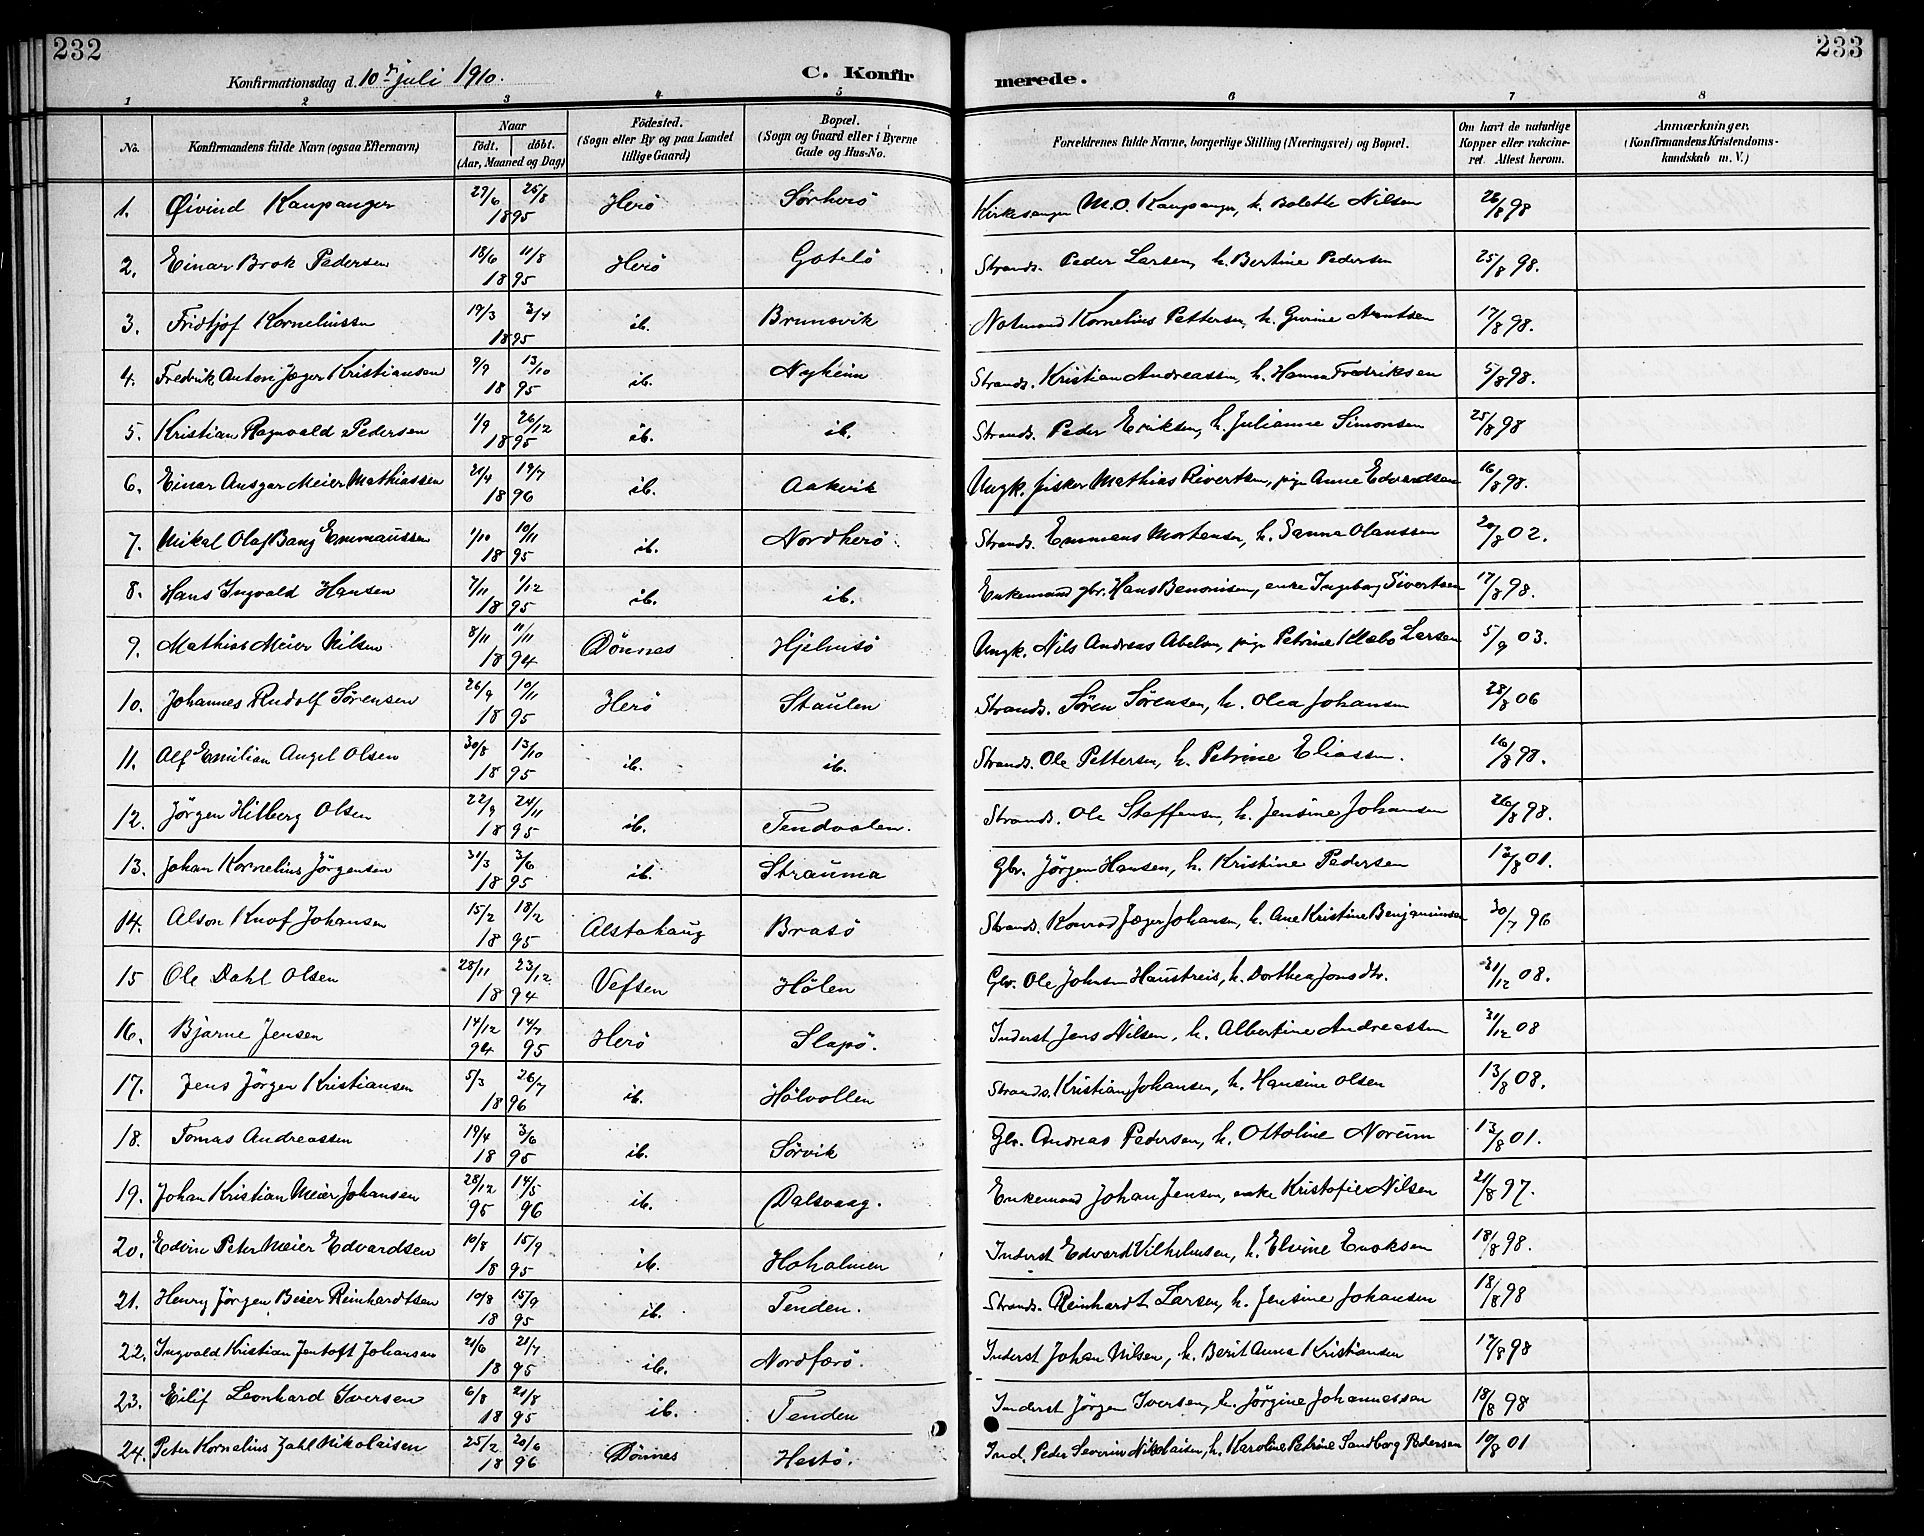 232
Konfirmationsdag d. 10de juli 1910.
C. Konfir
merede.
233
1 2 3 4 5 6 7 8
No.
Konfirmandens fulde Navn (ogsaa Efternavn)
Naar
födt. döbt.
(Aar, Maaned og Dag)
Födested.
(Sogn eller By og paa Landet
tillige Gaard)
Bopæl.
(Sogn og Gaard eller i Byerne
Gade og Hus-No.
Forældrenes fulde Navne, borgerlige Stilling (Næringsvei) og Bopæl.
Om havt de naturlige
Kopper eller vakcine-
ret. Attest herom.
Anmærkninger,
(Konfirmandens Kristendoms-
kundskab m. V.)
1. Øivind Kaupanger 27/6 25/8 1895 Herö Sörherö Kirkesanger M.O. Kaupanger, h. Bolette Nilsen 26/8 98
2. Einar Brok Pedersen 18/6 11/8 1895 Herö Gotelö Strands. Peder Larsen, h. Bertine Pedersen 25/8 98.
3. Fridtjof Korneliussen 19/3 3/4 1895 ib. Brunsvik Notmand Kornelius Pettersen, h. Gurine Arntsen 17/8 98.
4. Fredrik Anton Jæger Kristiansen 9/9 13/10 1895 ib. Nyheim Strands. Kristian Andreassen, h. Hanna Fredriksen 5/8 98.
5. Kristian Ragnvald Pedersen 1/9 26/12 1895 ib. ib. Strands. Peder Eriksen, h. Julianne Simonsen 25/8 98
6. Einar Ansgar Meier Mathiassen 21/4 19/7 1896 ib. Aakvik Ungk. fisker Mathias Sivertsen, pige Anne Edvardsen 16/8 98.
7. Mikal Olaf Bang Emmaussen 1/10 10/11 1895 ib. Nordherö. Strands. Emmaus Mortensen, h. Sanna Olaussen 20/8 02.
8. Hans Ingvald Hansen 7/11 1/12 1895 ib. ib. Enkemand gbr. Hans Benonisen, enke Ingeborg Sivertsen 17/8 98.
9. Mathias Meier Nilsen 8/11 11/11 1894 Dönnes Hjelmsö Ungk. Nils Andreas Abelsen, pige Petrine Klæbo Larsen 5/9 03.
10. Johannes Rudolf Sörensen 26/9 10/11 1895 Herö Staulen Strands. Sören Sörensen, h. Olea Johansen 28/8 06
11. Alf Emilian Angel Olsen 30/8 13/10 1895 ib. ib. Strands. Ole Pettersen, h. Petrine Eliassen. 16/8 98.
12. Jörgen Hilberg Olsen 22/9 24/11 1895 ib. Tendvalen. Strands. Ole Steffensen, h. Jensine Johansen 26/8 98.
13. Johan Kornelius Jörgensen 31/3 3/6 1895 ib. Strauma Gbr. Jörgen Hansen, h. Kristine Pedersen 13/8 01.
14. Alson Knof Johansen 15/2 18/2 1895 Alstahaug Brasö Strands. Konrad Jæger Johansen, h. Ane Kristine Benjaminsen 30/7 96
15 Ole Dahl Olsen 28/11 23/12 1894 Vefsen Hölen Gbr. Ole Johnsen Haustreis, h. Dorthea Jonsdtr. 31/12 08.
16. Bjarne Jensen 14/12 94 14/7 95 Herö Slapö. Inderst Jens Nilsen, h. Albertine Andreassen 31/12 08
17. Jens Jörgen Kristiansen 5/3 26/7 1896 ib. Hölvollen Strands. Kristian Johansen, h. Hansine Olsen 13/8 08.
18. Tomas Andreassen 19/4 3/6 1895 ib. Sörvik Gbr. Andreas Pedersen, h. Ottoline Norum 13/8 01.
19. Johan Kristian Meier Johansen 28/12 95 14/5 96 ib. Dalsvaag. Enkemand Johan Jensen, enke Kristofie Nilsen 21/8 97.
20. Edvin Peter Meier Edvardsen 10/8 15/9 1895 ib. Hoholmen Inderst Edvard Vilhelmsen, h. Elvine Enoksen 18/8 98.
21. Henry Jörgen Beier Reinhardtsen 10/8 15/9 1895 ib. Tenden. Strands. Reinhardt Larsen, h. Jensine Johansen 18/8 98
22. Ingvald Kristian Jentoft Johansen 21/6 21/7 1895 ib. Nordforö. Inderst Johan Nilsen, h. Berit Anna Kristiansen 17/8 98
23. Eilif Leonhard Iversen 6/8 21/8 1895 ib. Tenden Inderst Jörgen Iversen, h. Jörgine Johannessen 18/8 98
24. Peter Kornelius Zahl Nikolaisen 25/2 20/6 1896 Dönnes Hestö. Ind. Peder Severin Nikolaisen, h. Karoline Petrine Sandberg Pedersen 10/8 01